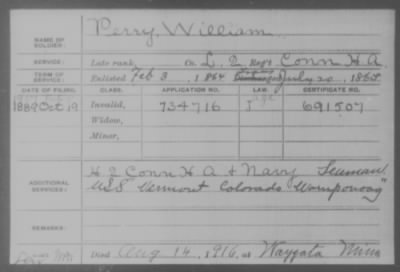 NAME OF SOLDIER: Perry, William
SERVICE: Late rank, Co. L, 2 Reg't Conn H A.
TERM OF SERVICE: Enlisted Feb 3, 1864 Discharged July 20, 1865
DATE OF FILING. CLASS. APPLICATION NO. LAW. CERTIFICATE NO.
1889 Oct 19 Invalid, 734716 691507
Widow,
Minor,
H 2 Conn H A & Navy Seaman
ADDITIONAL SERVICES: U.S.S. Vermont Colorado Wamponoag"
REMARKS:
Died Aug 14, 1916, at Wayzata Minn